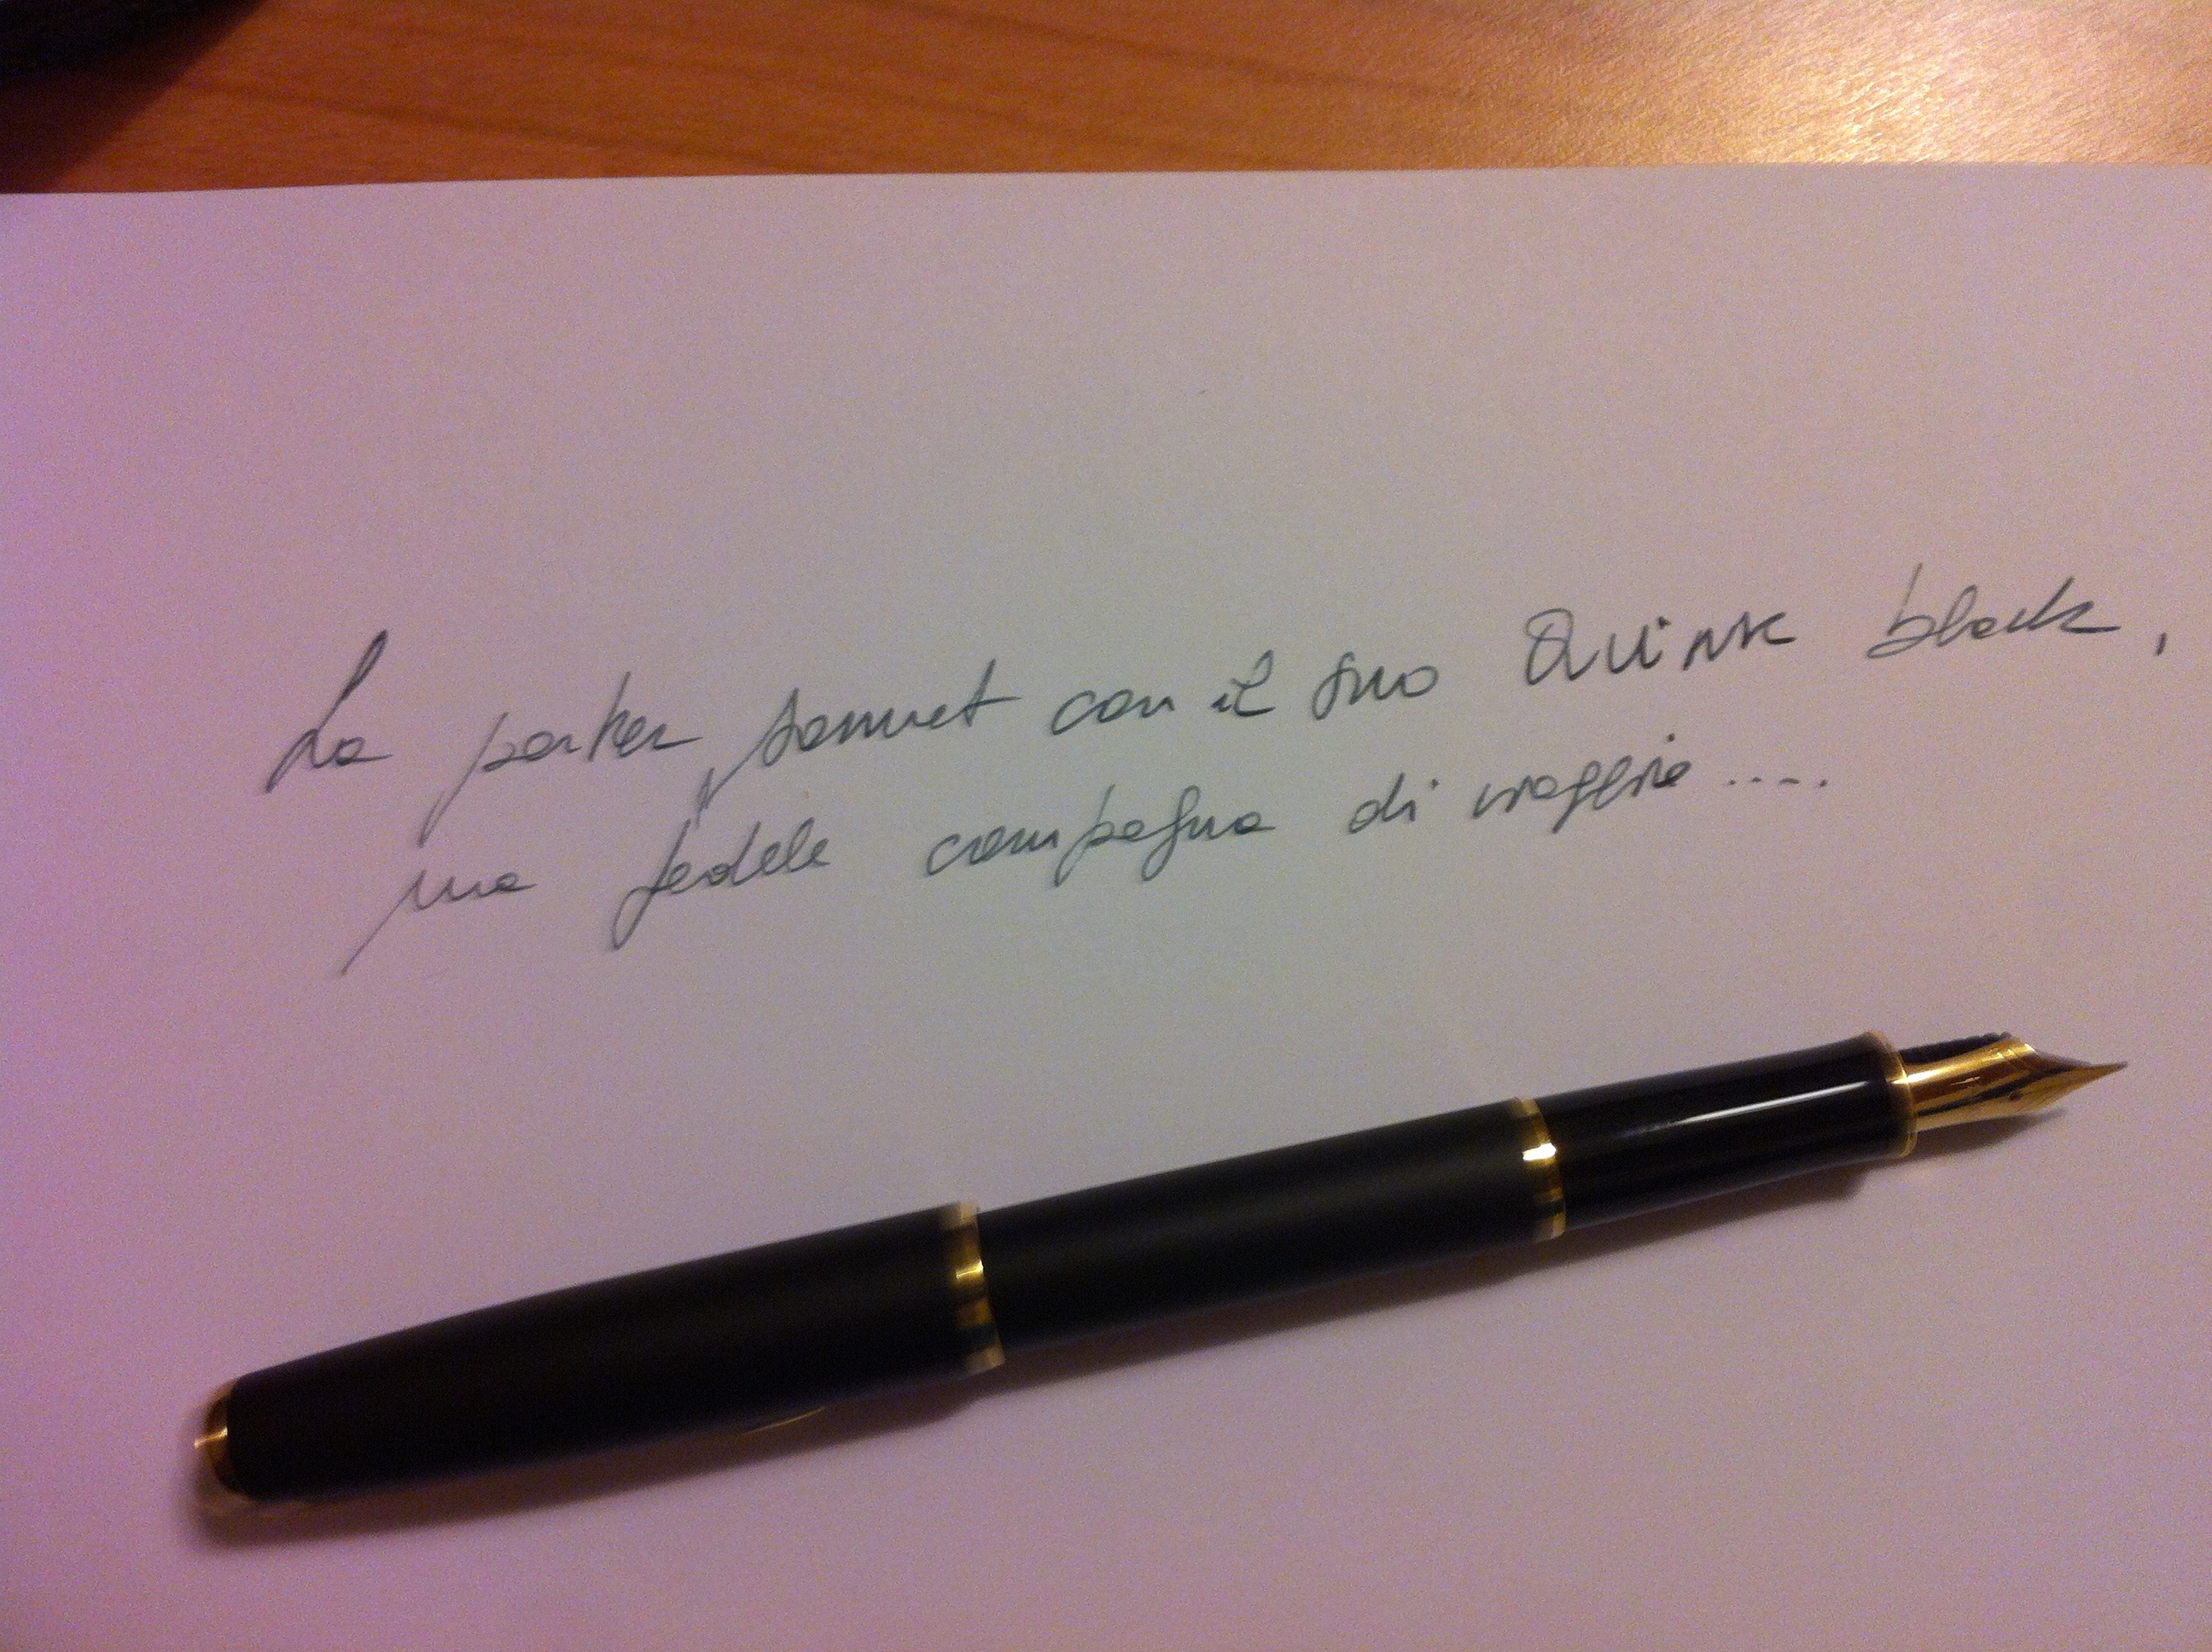 La parker sonnet con il suo Quink black,
una fedele compagna di viaggio.....